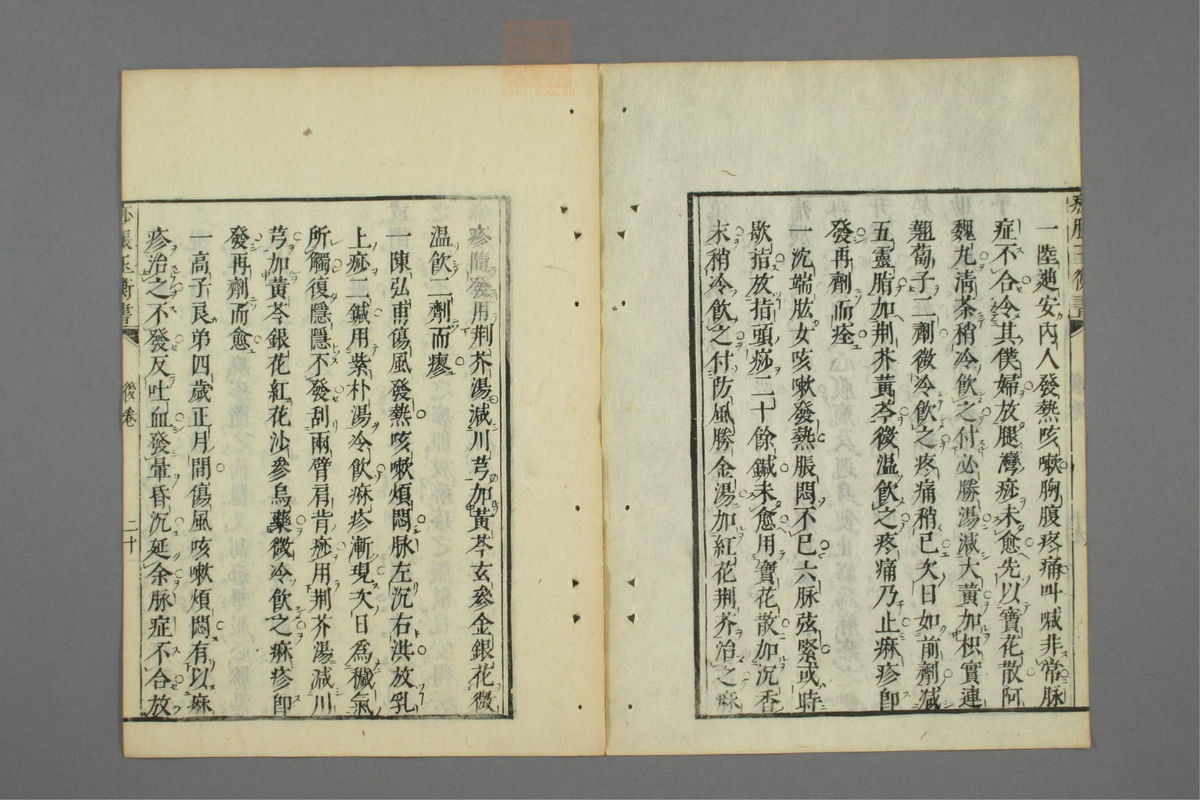 一陸廸安內人發熱咳嗽胸腹疼痛叫喊非常脉
症不合令其僕婦放腿灣痧未愈先以寶花散阿
魏丸清茶稍冷飲之付必勝湯減大黃加枳實連
翹蔔子二劑微冷飲之疼痛稍已次日如前劑減
五靈脂加荆芥黃芩微溫飲之疼痛乃止麻疹卽
發再劑而痊
一沈端肱女咳嗽發熱脹悶不已六脉弦緊或時
歇指放指頭痧二十餘鍼未愈用寶花散加沉香
末稍冷飲之付防風勝金湯加紅花荆芥治之麻
疹隨發用荆芥湯減川芎加黃芩玄參金銀花微
温飲二劑而瘳
一陳弘甫傷風發熱咳嗽煩悶脉左沉右洪放乳
上痧二鍼用紫朴湯冷飲麻疹漸現次日爲穢氣
所觸復隱隱不發刮兩臂肩背痧用荆芥湯減川
芎加黃芩銀花紅花沙參烏藥微冷飲之麻疹卽
發再劑而愈
一高子良弟四歲正月間傷風咳嗽煩悶有以麻
疹治之不發反吐血發暈昏沉延余脉症不合放
痧脹玉衡書 後卷 二十